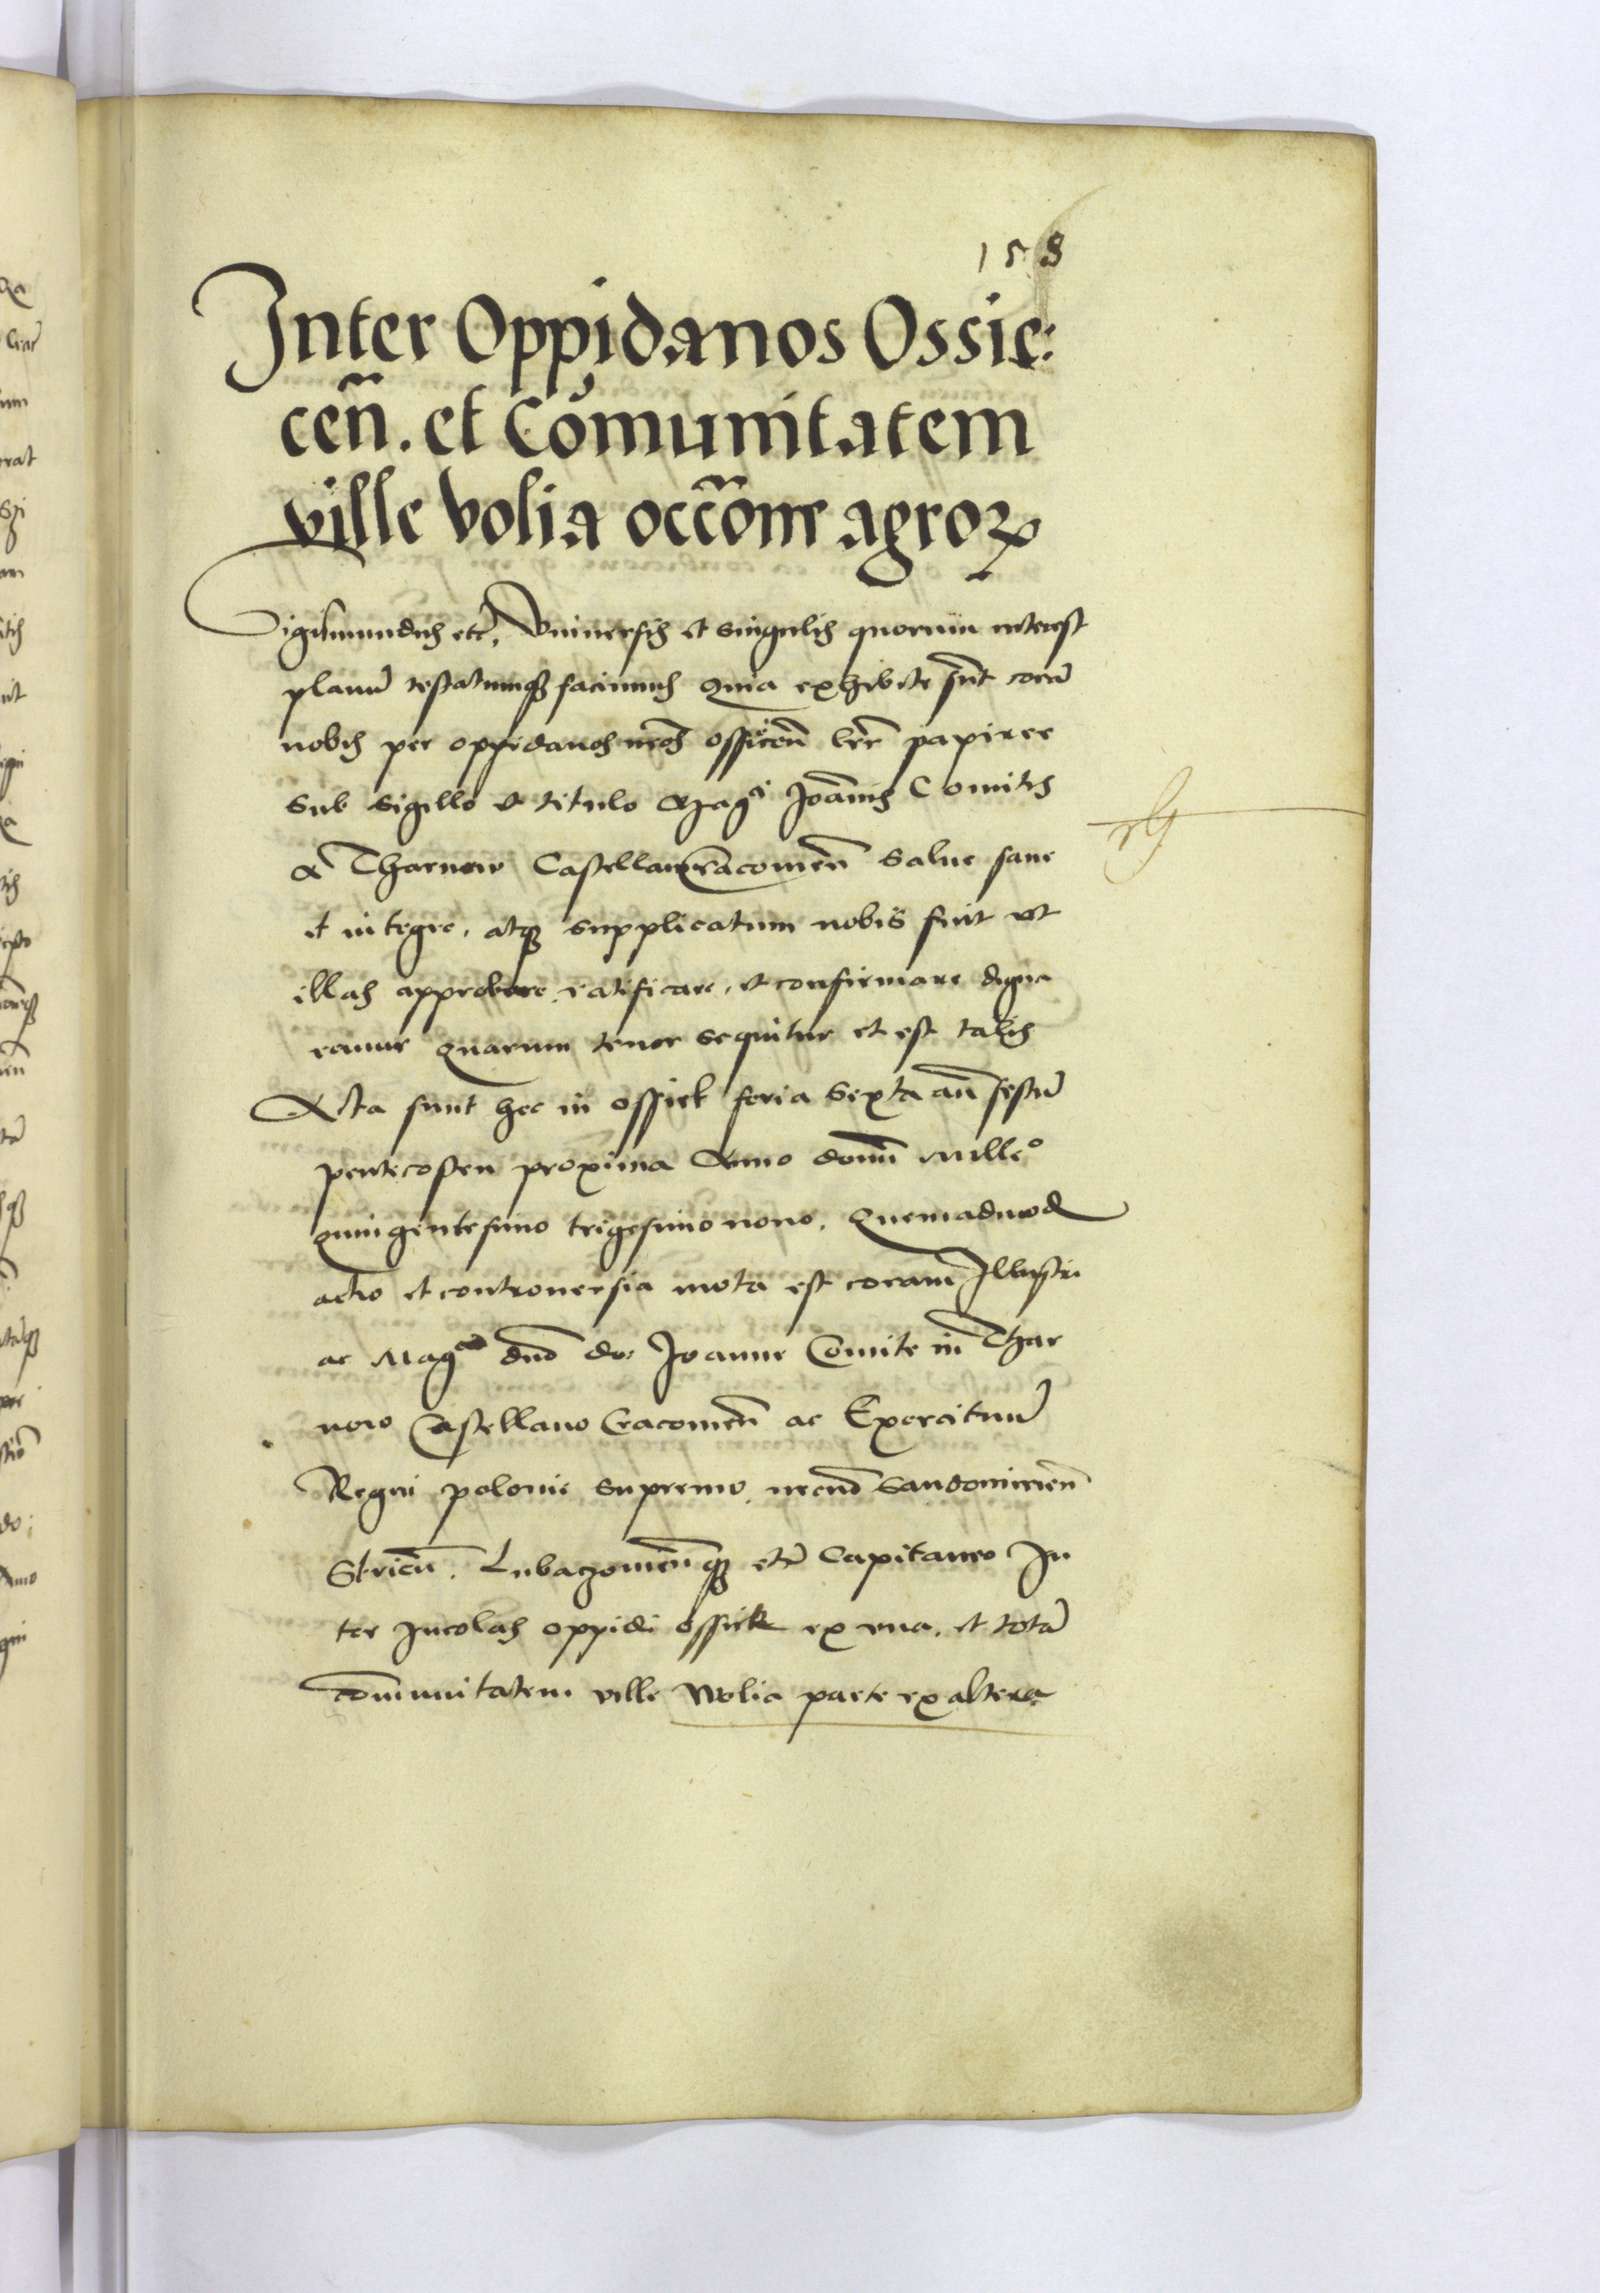 158
Inter Oppidanos Ossie:
cen̄. et Cōmunitatem
ville volia occōne agroꝝ
Sigismundus etc̄. Vniuersis et singulis quorum interest
planū testatumqꝫ facimus Quia exhibite sunt corā
nobis per oppidanos nr̄os ossiecen̄ lrē papiree
sub sigillo et titulo Magci Joannis Comitis
a Tharnow Castellani Cracouien̄ salue sane
et integre, atqꝫ supplicatum nobis fuit vt
illas approbare, ratificare, et confirmare digna
remur Quarum tenor sequitur et est talis
Acta sunt hec in ossiek feria sexta an̄ festū
pentecosten proxima Anno domī Milleo
quingentesimo trigesimo nono. Quemadmod
actio et controuersia mota est coram Illustri
ac Magco dn̄o do: Joanne Comite in Thar
now Castellano Cracouien̄ ac Exercituū
Regni polonie supremo, necnō Sandomirien̄
Stricen̄. Lubaczouien̄qꝫ etc̄ Capitaneo In
ter Incolas oppidi ossiek ex vna, et totā
cōmunitatem ville Wolia parte ex altera